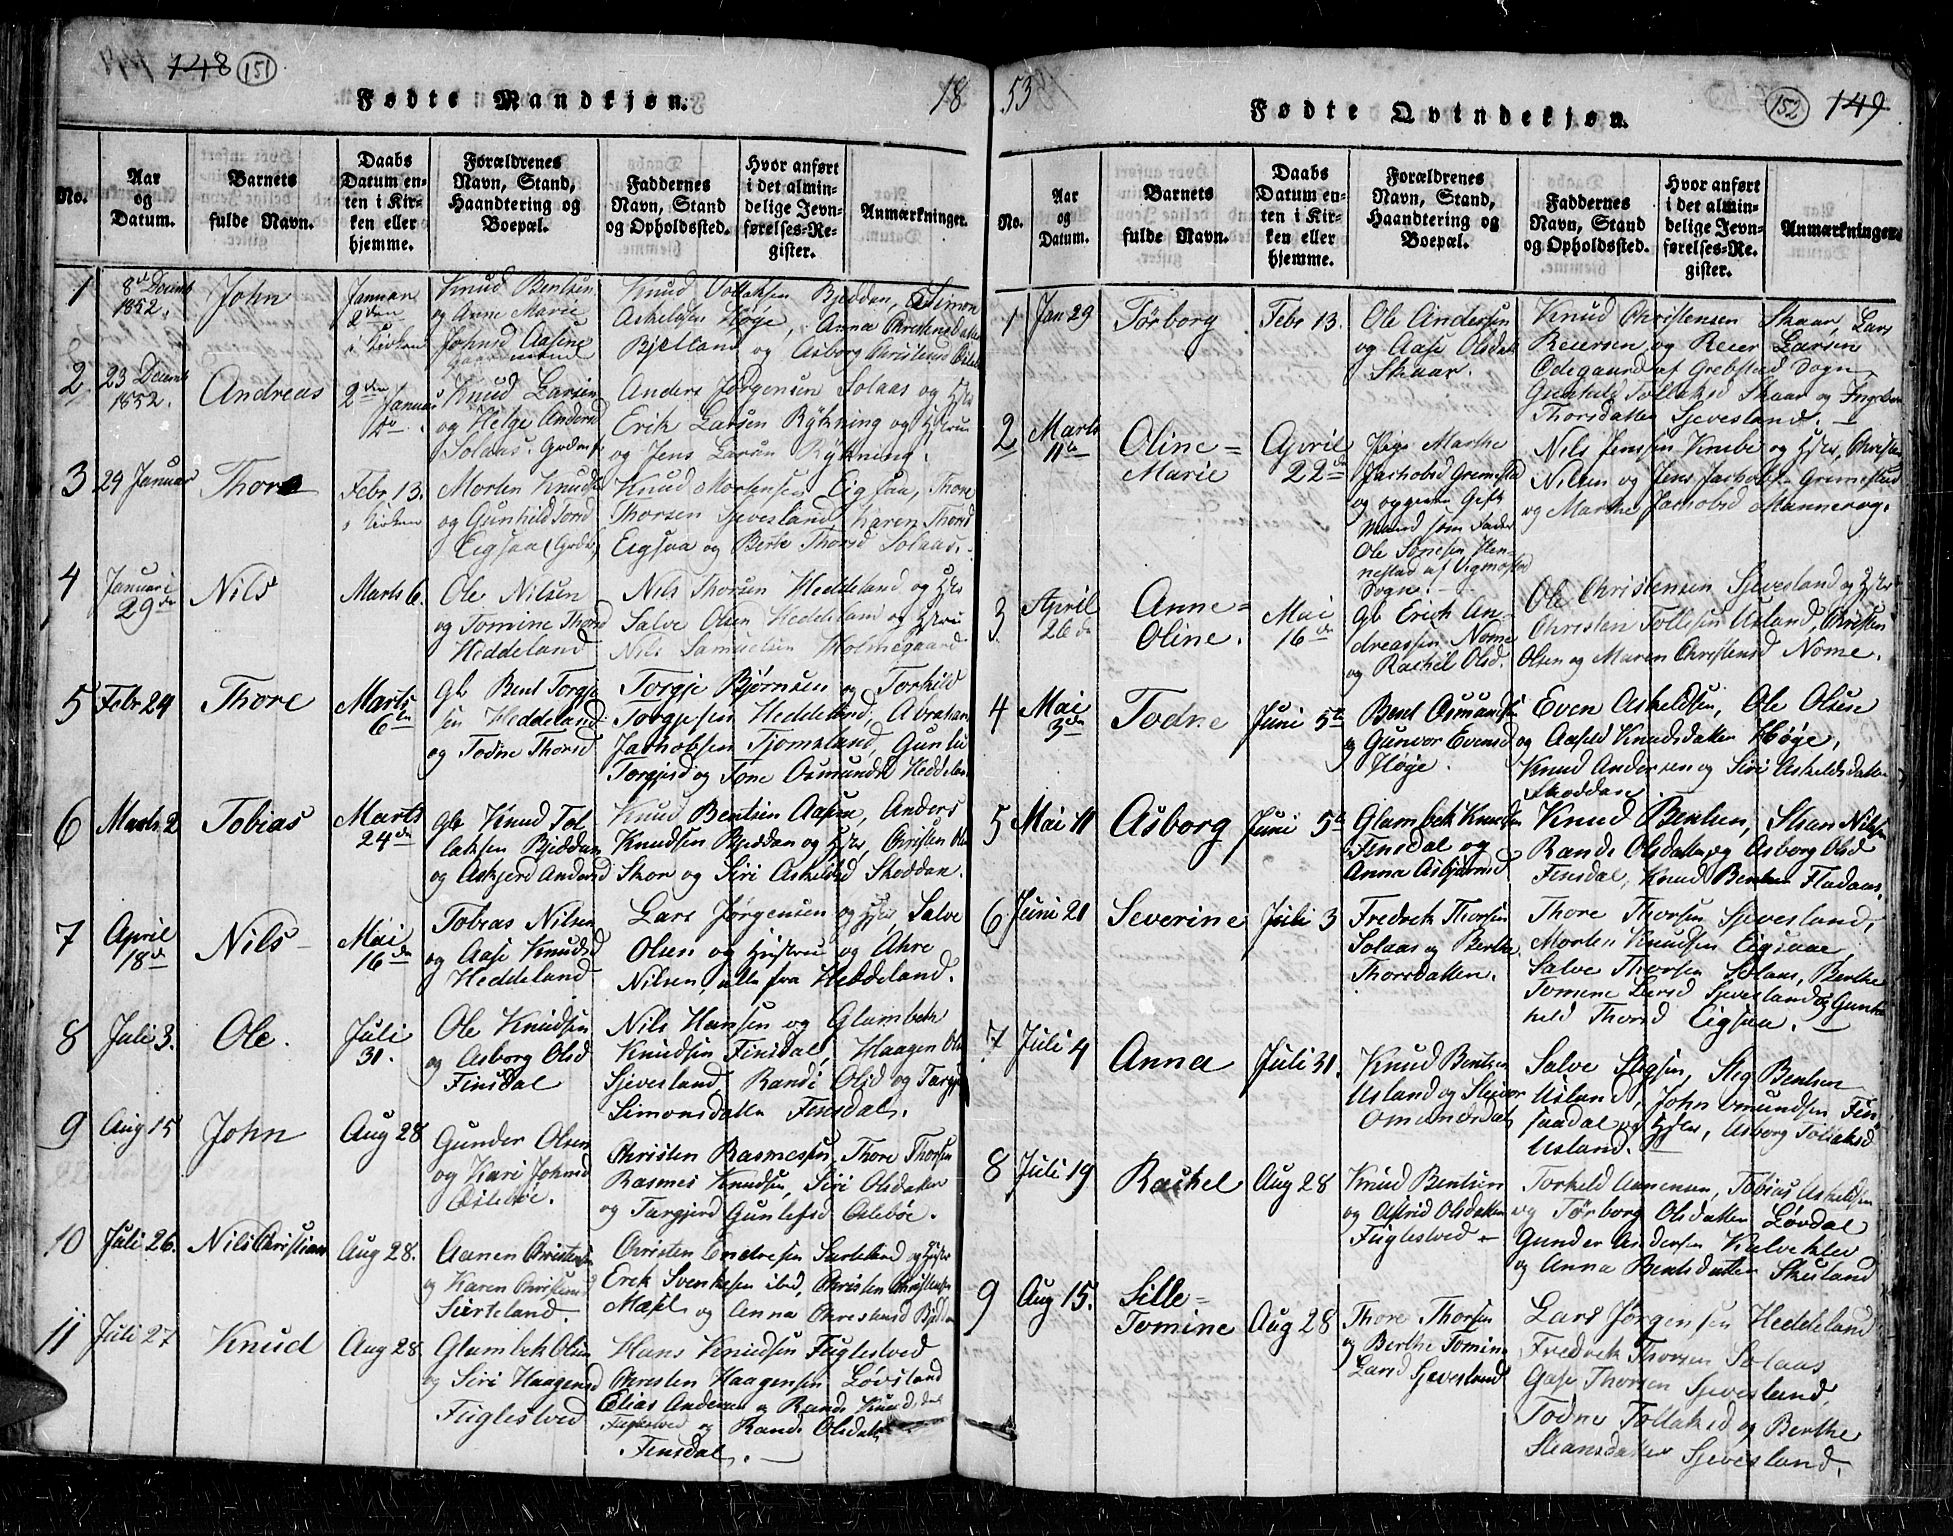 148 151
Fødte Mandkjøn.
18
No.
Aar og Datum.
Barnets fulde Navn.
Daabs Datum enten i Kirken eller hjemme.
Forældrenes Navn, Stand, Haandtering og Boepæl.
Faddernes Navn, Stand og Opholdssted.
Hvor anført i det almindelige Jevnførelses-Register.
Anmærkninger.
1
8de Decemb
1852.
John
Januar
2den
i Kirken
Knud Bentsen
og Anne Marie
Johnsd Aasene
Knud Tollaksen Bjeddan, Simon
Askeldsen Høge, Anna Christensdatter
Bjelland og Asborg Christensd
2
23 Decemb
1852.
Andreas
2den
Januar
Knud Larsen
og Helge Andersd
Solaas. Gaardm
Anders Jørgensen Solaas og Hstr
Erik Larsen Rykning og Hstru
og Jens Larsen Rykning.
3
29 Januar
Thore
Febr. 13.
i Kirken
Morten Knudsen
og Gunhild Torsd
Eigsaa
Knud Mortensen Eigsaa, Thore
Thorsen Sjevesland, Karen Thorsd
Eigsaa og Berte Thorsd Solaas.
4
Januari
29de
Nils
Marts 6.
Ole Nilsen
og Tomine Thorsd
Heddeland
Nils Thorsen Heddeland og Hstr
Salve Olsen Heddeland og Hstru
Nils Samuelsen Holmegaard
5
Febr 24
Thore
Marts
6te
Gb Bent Torgje
sen Heddeland
og Todne Thorsd
Torgje Bjørnsen og Torkild
Torgjesen Heddeland, Abraham
Jakobsen Tjomsland, Gunlie
Torgjusd og Tone Osmundsd Heddeland
6
Marts 2
Tobias
Marts
24de
Gb Knud Tol
laksen Bjeddan
og Askjerd Andersd
Knud Bentsen Aasene, Anders
Knudsen Bjeddan og Hstr, Christen Ols
Skor og Siri Askelsd Skoddan.
7
April
18de
Nils
Mai
16de
Tobias Nilsen
og Aase Knudsd
Heddeland
Lars Jørgensen og Hstr, Salve
Olsen og Hustru og Ahre
Nilsen, alle fra Heddeland.
8
Juli 3.
Ole.
Juli
31.
Ole Knudsen
og Asborg Olsd
Finsdal
Nils Hansen og Glambek
Knudsen Finsdal, Haagen Ols
Sjevesland, Randi Olsd og Targje
Simonsdatter Finsdal.
9
Aug 15
John
Aug 28
Gunder Olsen
og Kari Johnsd
Oslebøe.
Christen Rasmesen, Thore Thorsen
Rasmes Knudsen, Siri Olsdatter
og Targjerd Gunlefsd Oslebøe.
10
Juli 26.
Nils Christian
Aug 28.
Aanen Christensen
og Karen Christensd
Sirteland.
Christen Endresen Sarteland og Hstr
Erik Svenkesen ibid, Christen Christensen
Mæsel og Anna Christensd
11
Juli 27
Knud
Aug 28
Glambek Olsen
og Siri Haagensd
Fuglestved
Hans Knudsen Fuglestved
Christen Haagensen Løvsland
Elias Andersen og Randi Knudsdat
Fuglestved og Randi Olsdatter
Finsdal.
53
152 149
Fødte Qvindekjøn.
No.
Aar og Datum.
Barnets fulde Navn.
Daabs Datum enten i Kirken eller hjemme.
Forældrenes Navn, Stand, Haandtering og Boepæl.
Faddernes Navn, Stand og Opholdssted.
Hvor anført i det almindelige Jevnførelses-Register.
Anmærkninger.
1
Jan 29
Tørborg
Febr 13.
Ole Andersen
og Aase Olsdatt
Skaar.
Knud Christensen Skaar, Lars
Reiersen og Reier Larsen
Ødegaard af Grebstad Sogn,
Gunhild Tollaksd Skaar og Ingeborg
Thorsdatter Sjevesland.
2
Marts
11te
Oline=
Marie
April
22de
Pige Marthe
Jakobsd Gremestad
og opgiven Gift
Mand som Fader
Ole Tønesen Hen
nestad af Vigmostad
Sogn.
Nils Jensen Knibe og Hstr, Christen
Nilsen og Jens Jakobsen Gremestad
og Marthe Jakobsd Mannerog.
3
April
26de
Anne=
Oline.
Mai
16de
Gb Erick An
dreassen Nome
og Rachel Olsd.
Ole Christensen Sjevesland og Hstr
Christen Tollefsen Usland, Christen
Olsen og Maren Christensd Nome.
4
Mai
3de
Todne
Juni 5te
Bent Osmundsen
og Gunvor Evensd
Høge.
Even Askeldsen, Ole Olsen
og Aasild Knudsdatter Høge,
Knud Andersen og Siri Askeldsdatter
Skoddan.
5
Mai 11
Asborg
Juni 5te
Glambek Knudsen
Finsdal og
Anna Asbjørnsd
Knud Bentsen, Stian Nilsen
Rande Olsdatter og Asborg Olsd
Finsdal, Knud Bentsen Fladaas.
6
Juni 21
Severine
Juli 3
Fredrik Thorsen
Solaas og Berthe
Thorsdatter.
Thore Thorsen Sjevesland,
Morten Knudsen Eigsaae,
Salve Thorsen Solaas, Berthe
Tomine Larsd Sjevesland og Gun
hild Thorsd Eigsaa.
7
Juli 4
Anna
Juli 31.
Knud Bentsen
Usland og Steinvor
Omundsdat
Salve Stigsen, Stig Bentsen
Usland, John Omundsen Fin
saadal og Hstr, Asborg Tollaksd
Usland.
8
Juli 19
Rachel
Aug 28
Knud Bentsen
og Astrid Olsdatter
Fuglestved
Torkeld Aanensen, Tobias Askeldsen
og Tørborg Olsdatter Løvdal
Gunder Andersen Kalvehlev
og Anna Bentsdatter Skusland
9
Aug 15.
Sille=
Tomine
Aug 28
Thore Thorsen
og Berthe Tomine
Larsd Sjevesland
Lars Jørgensen Heddeland
Fredrik Thorsen Solaas
Gase Thorsen Sjevesland,
Todne Tollaksd og Berthe
Steansdatter Sjevesland.